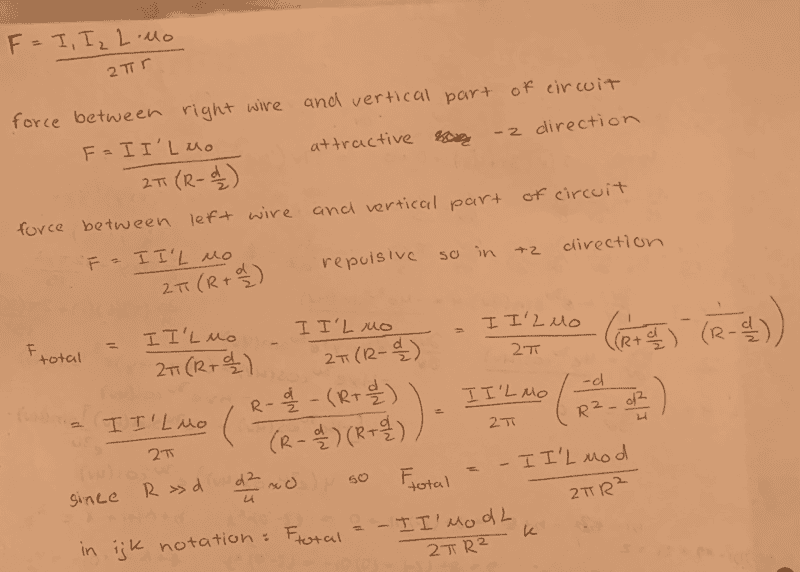 F = I₁ I₂ L · μ₀ / 2πr
force between right wire and vertical part of circuit
F = I I' L μ₀ / 2π (R - d/2) attractive -z direction
force between left wire and vertical part of circuit
F = I I' L μ₀ / 2π (R + d/2) repulsive so in +z direction
F total = I I' L μ₀ / 2π (R + d/2) - I I' L μ₀ / 2π (R - d/2) = I I' L μ₀ / 2π (1 / (R + d/2) - 1 / (R - d/2))
= I I' L μ₀ / 2π (R - d/2 - (R + d/2) / (R - d/2)(R + d/2)) = I I' L μ₀ / 2π (-d / R² - d²/4)
since R >> d d²/4 ≈ 0 so F total = - I I' L μ₀ d / 2πR²
in ijk notation : F total = - I I' μ₀ d L / 2πR² k